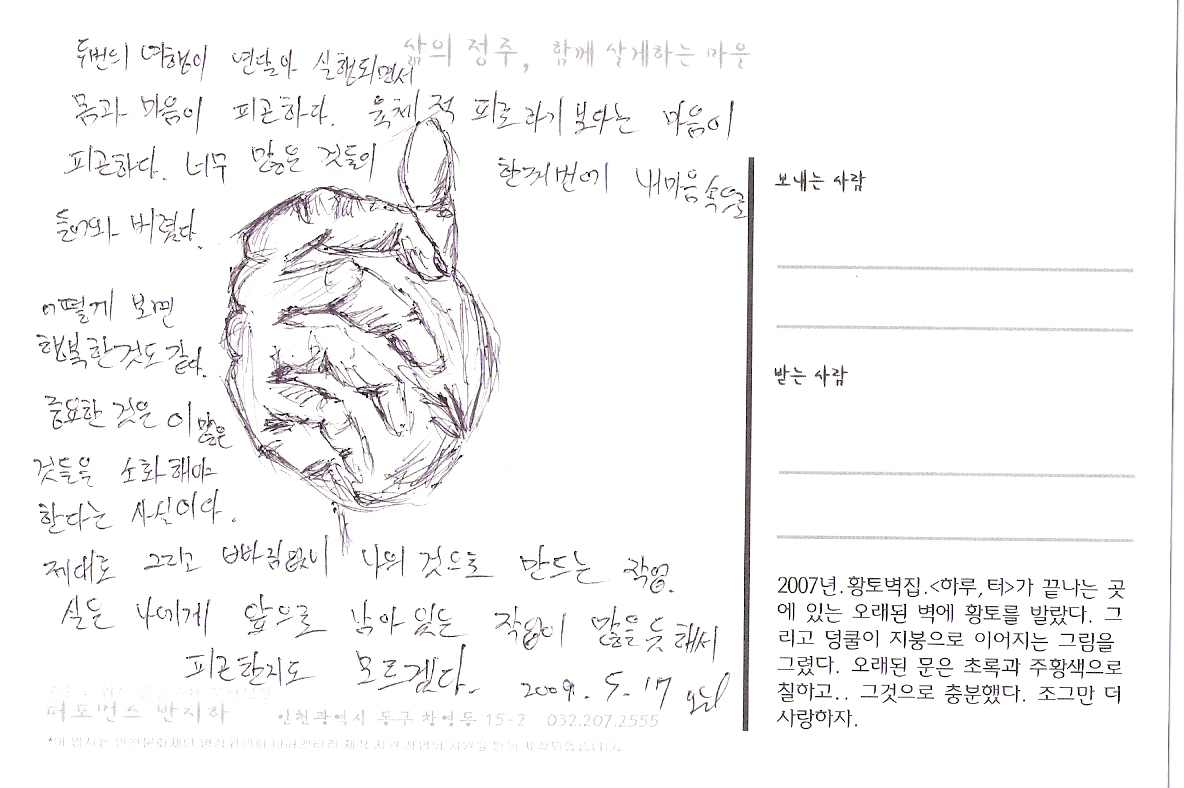 삶의 정주, 함께 살게하는 마을
두번의 여행이 연달아 실행되면서
몸과 마음이 피곤하다. 육체적 피로라기 보다는 마음이
피곤하다. 너무 많은 것들이 한꺼번에 내마음속으로
들어와 버렸다.
어떻게 보면
행복한것도 같다.
중요한 것은 이 많은
것들을 소화해야
한다는 사실이다.
제대로 그리고 빠짐없이 나의 것으로 만드는 작업.
실은 나에게 앞으로 남아 있는 작업이 많을 듯 해서
피곤한지도 모르겠다.
2009. 5. 17
퍼포먼스 반지하 인천광역시 동구 창영동 15-2 032.207.2555
보내는 사람
받는 사람
2007년.황토벽집.<하루,터>가 끝나는 곳
에 있는 오래된 벽에 황토를 발랐다. 그
리고 덩쿨이 지붕으로 이어지는 그림을
그렸다. 오래된 문은 초록과 주황색으로
칠하고.. 그것으로 충분했다. 조그만 더
사랑하자.